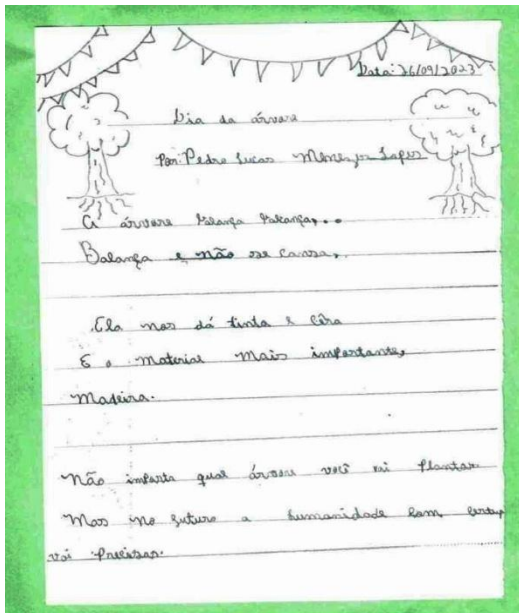 Data: 26/09/2023
Dia da árvore
Por: Pedro Lucas Menezes Lopes
A árvore balança balança...
Balança e não se cansa.
Ela nos dá tinta e cêra
E o material mais importante,
Madeira.
Não importa qual árvore você vai plantar
Mas no futuro a humanidade com certeza
vai precisar.